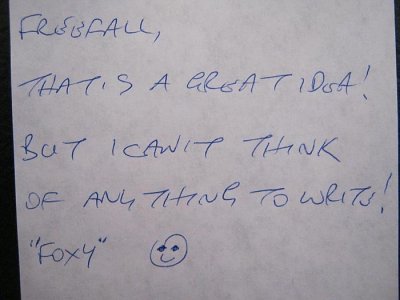 FREEFALL,
THAT'S A GREAT IDEA!
BUT I CAN'T THINK
OF ANYTHING TO WRITE!
"FOXY"